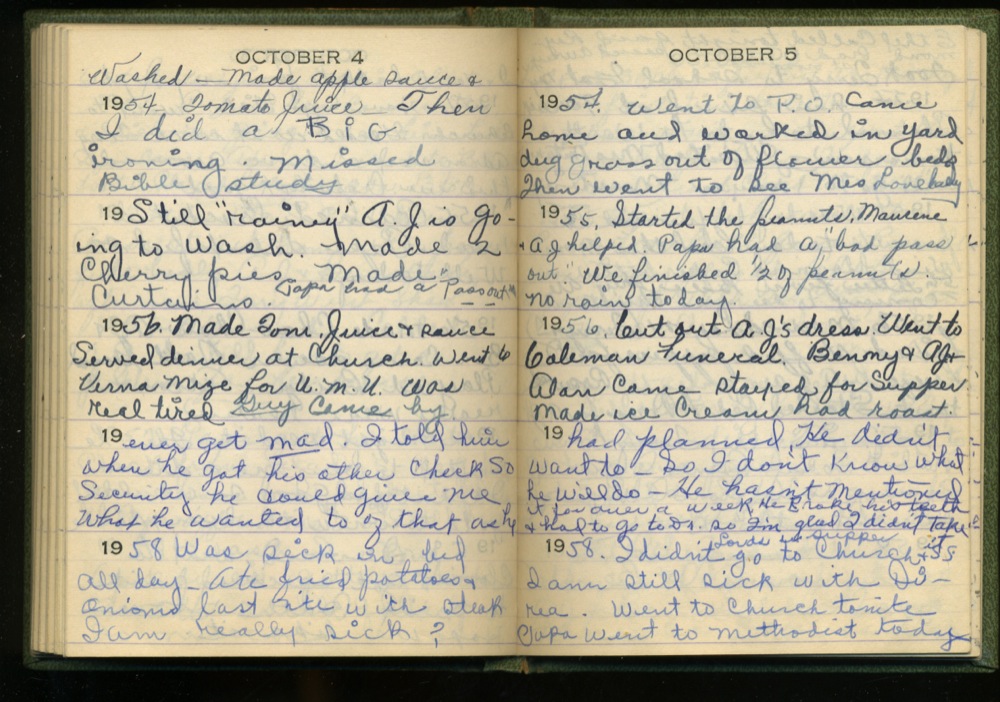 OCTOBER 4
Washed — Made apple sauce &
1954 Tomato Juice Then
I did a BIG
ironing. Missed
Bible study
19 Still "rainey" A.J. is go-
ing to wash. Made 2
Cherry pies. Made
Curtains. Papa had a "Pass out"
1956. Made Tom. Juice & sauce
Served dinner at Church. Went to
Verna Mize for W.M.U. Was
real tired Guy Came by
19 ever get mad. I told him
when he got his other Check So
Security he could give me
what he wanted to of that as he
1958 Was sick in bed
all day — Ate fried potatoes &
onions last nite with steak
I am really sick?
OCTOBER 5
1954. Went to P.O. Came
home and worked in yard
dug grass out of flower beds
Then went to see Mrs Lovelady
1955. Started the peanuts. Maurene
& AJ helped Papa had a "bad pass
out" We finished 1/2 of peanuts.
no rain today.
1956. Cut out A.J's dress. Went to
Coleman Funeral. Benny & AJ &
Dan Came stayed for Supper
Made ice Cream had roast.
19 had planned, He didn't
want to — So I don't know what
he will do — He hasn't mentioned
it for over a week He Broke his teeth
& had to go to Dr. so I'm glad I didn't take it
Lords supper
1958. I didn't go to Church & SS
I am still sick with Di-
rea. Went to Church tonite
Papa went to Methodist today